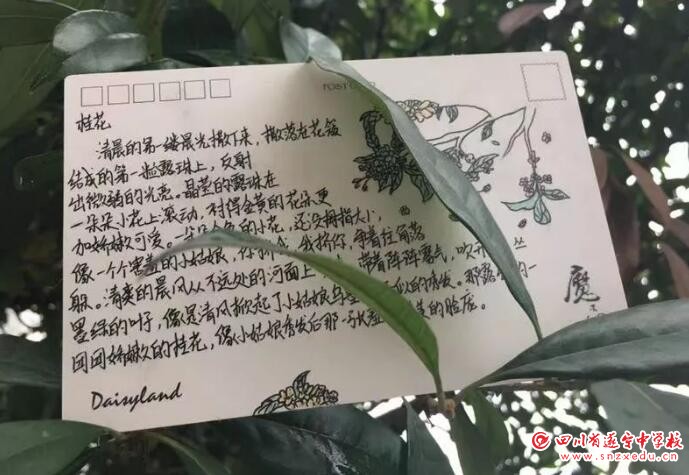 POST CARD
桂花
清晨的第一缕晨光撒下来，撒落在花每
结成的第一粒露珠上，反射
出微弱的光亮。晶莹的露珠在
一朵朵小花上滚动，衬得金黄的花朵更
加娇嫩可爱。一朵朵 色的小花，还没拇指大小，
像一个个害羞的小姑娘，你挤我，我挤你，争着往角落
躲。清爽的晨风从不远处的河面上 带着阵阵雾气，吹开 丛
墨绿的叶子，像是清风掀起了小姑娘乌 似的睛发。那露 的一
团团娇嫩的桂花，像小姑娘秀发后那一张 的脸庞。
魔
Daisyland
四川省遂宁中学校
www.snzxedu.cn